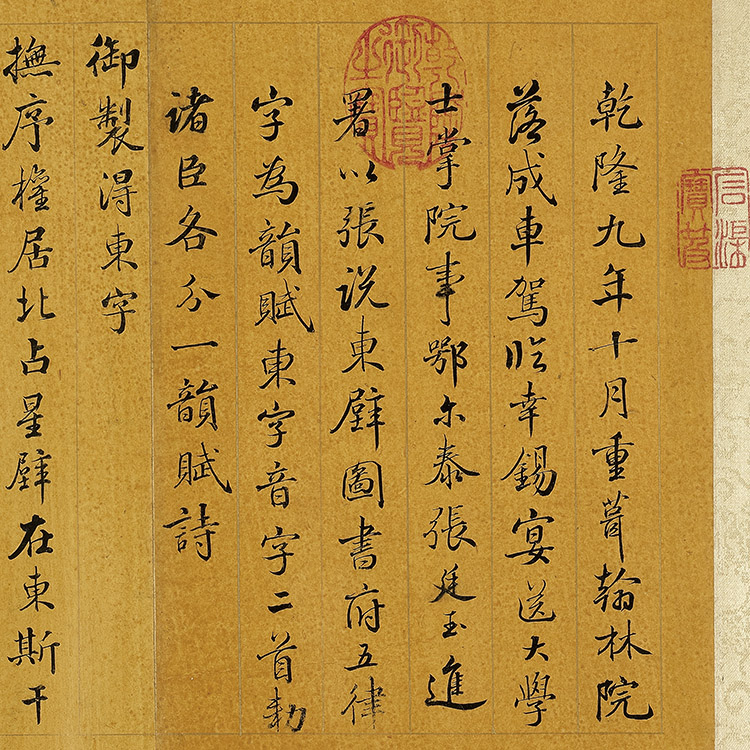 石渠寶笈
乾隆九年十月重葺翰林院
落成車駕臨幸錫宴送大學
士掌院事鄂尔泰張廷玉進
署以張說東壁圖書府五律
字為韻賦東字音字二首勅
諸臣各分一韻賦詩
御製得東字
撫序權居北占星壁在東斯干
乾隆御覽之寶